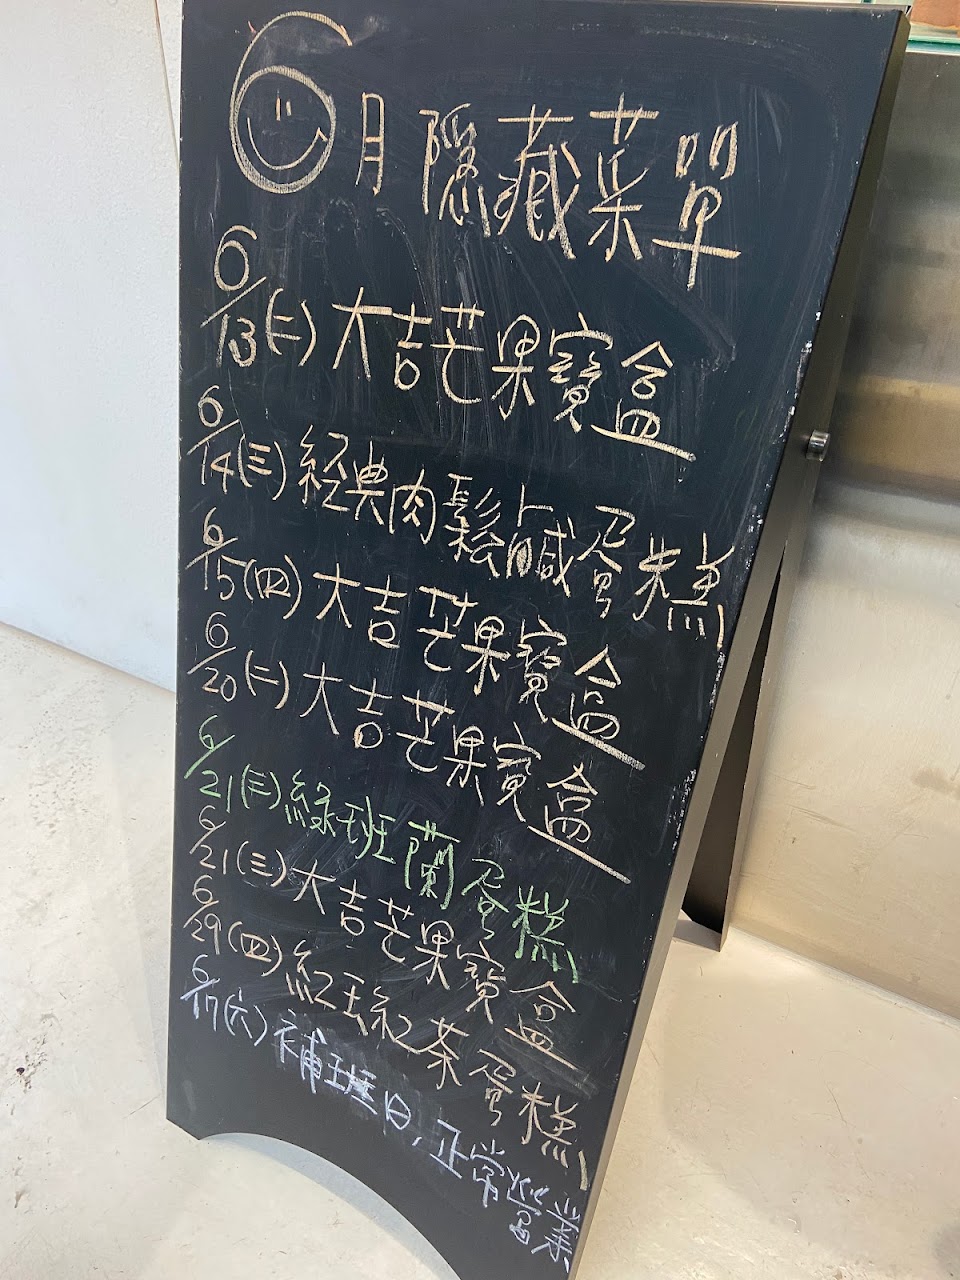 6月隱藏菜單
6/13(二)大吉芒果寶盒
6/14(三)經典肉鬆鹹蛋糕
6/15(四)大吉芒果寶盒
6/20(二)大吉芒果寶盒
6/21(三)綠班蘭蛋糕
6/21(三)大吉芒果寶盒
6/29(四)紅玉紅茶蛋糕
6/17(六)補班日,正常營業